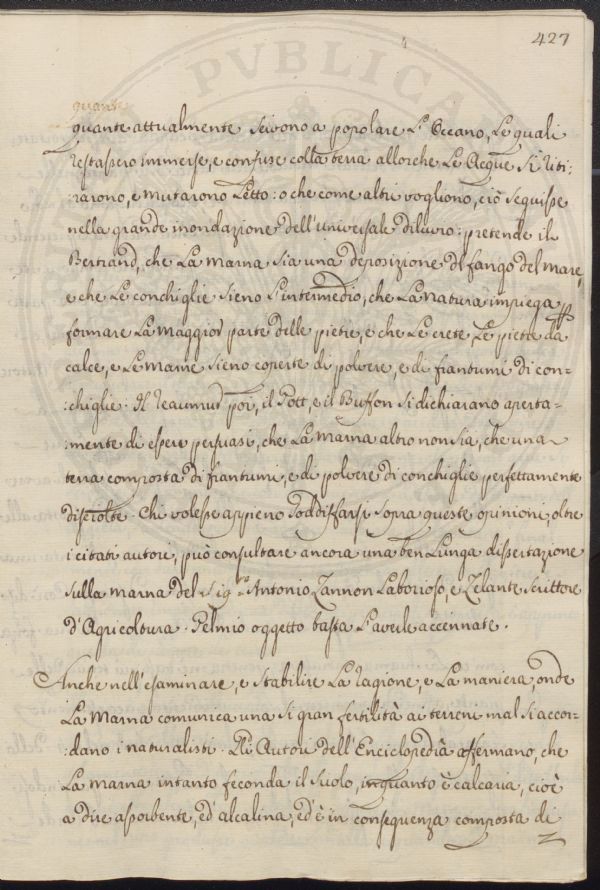 427
PVBLICA
quante
quante attualmente servono a popolare L'Oceano, Le quali
restassero immerse, e confuse colla terra allorche Le Acque si riti:
:rarono, e mutarono Letto: o che come altri vogliono, ciò seguisse
nella grande inondazione dell'Universale diluvio: pretende il
Bertrand, che La Marna sia una deposizione di fango del Mare,
e che Le conchiglie sieno L'intermedio, che La natura impiega p
formare La Maggior parte delle pietre, e che Le crete, Le pietre da
calce, e Le Marne sieno coperte di polvere, e di frantumi di con-
:chiglie. Il Reaumur poi, il Pott, e il Buffon si dichiarano aperta-
:mente di essere persuasi, che La Marna altro non sia, che una
terra composta di frantumi, e di polvere di conchiglie perfettamente
disciolte. Chi volesse appieno soddisffarsi sopra queste opinioni, oltre
i citati autori, può consultare ancora una ben Lunga dissertazione
sulla marna del Sig.re Antonio Zannon Laborioso, e Zelante Scrittore
d'Agricoltura. Pel mio oggetto basta L'averle accennate.
Anche nell'esaminare, e stabilire La ragione, e La maniera, onde
La Marna comunica una sì gran fertilità ai terreni mal si accor-
:dano i naturalisti. Gli Autori dell'Enciclopedia affermano, che
La marna intanto feconda il suolo, inquanto è calcaria, cioè
a dire assorbente, ed alcalina, ed è in conseguenza composta di